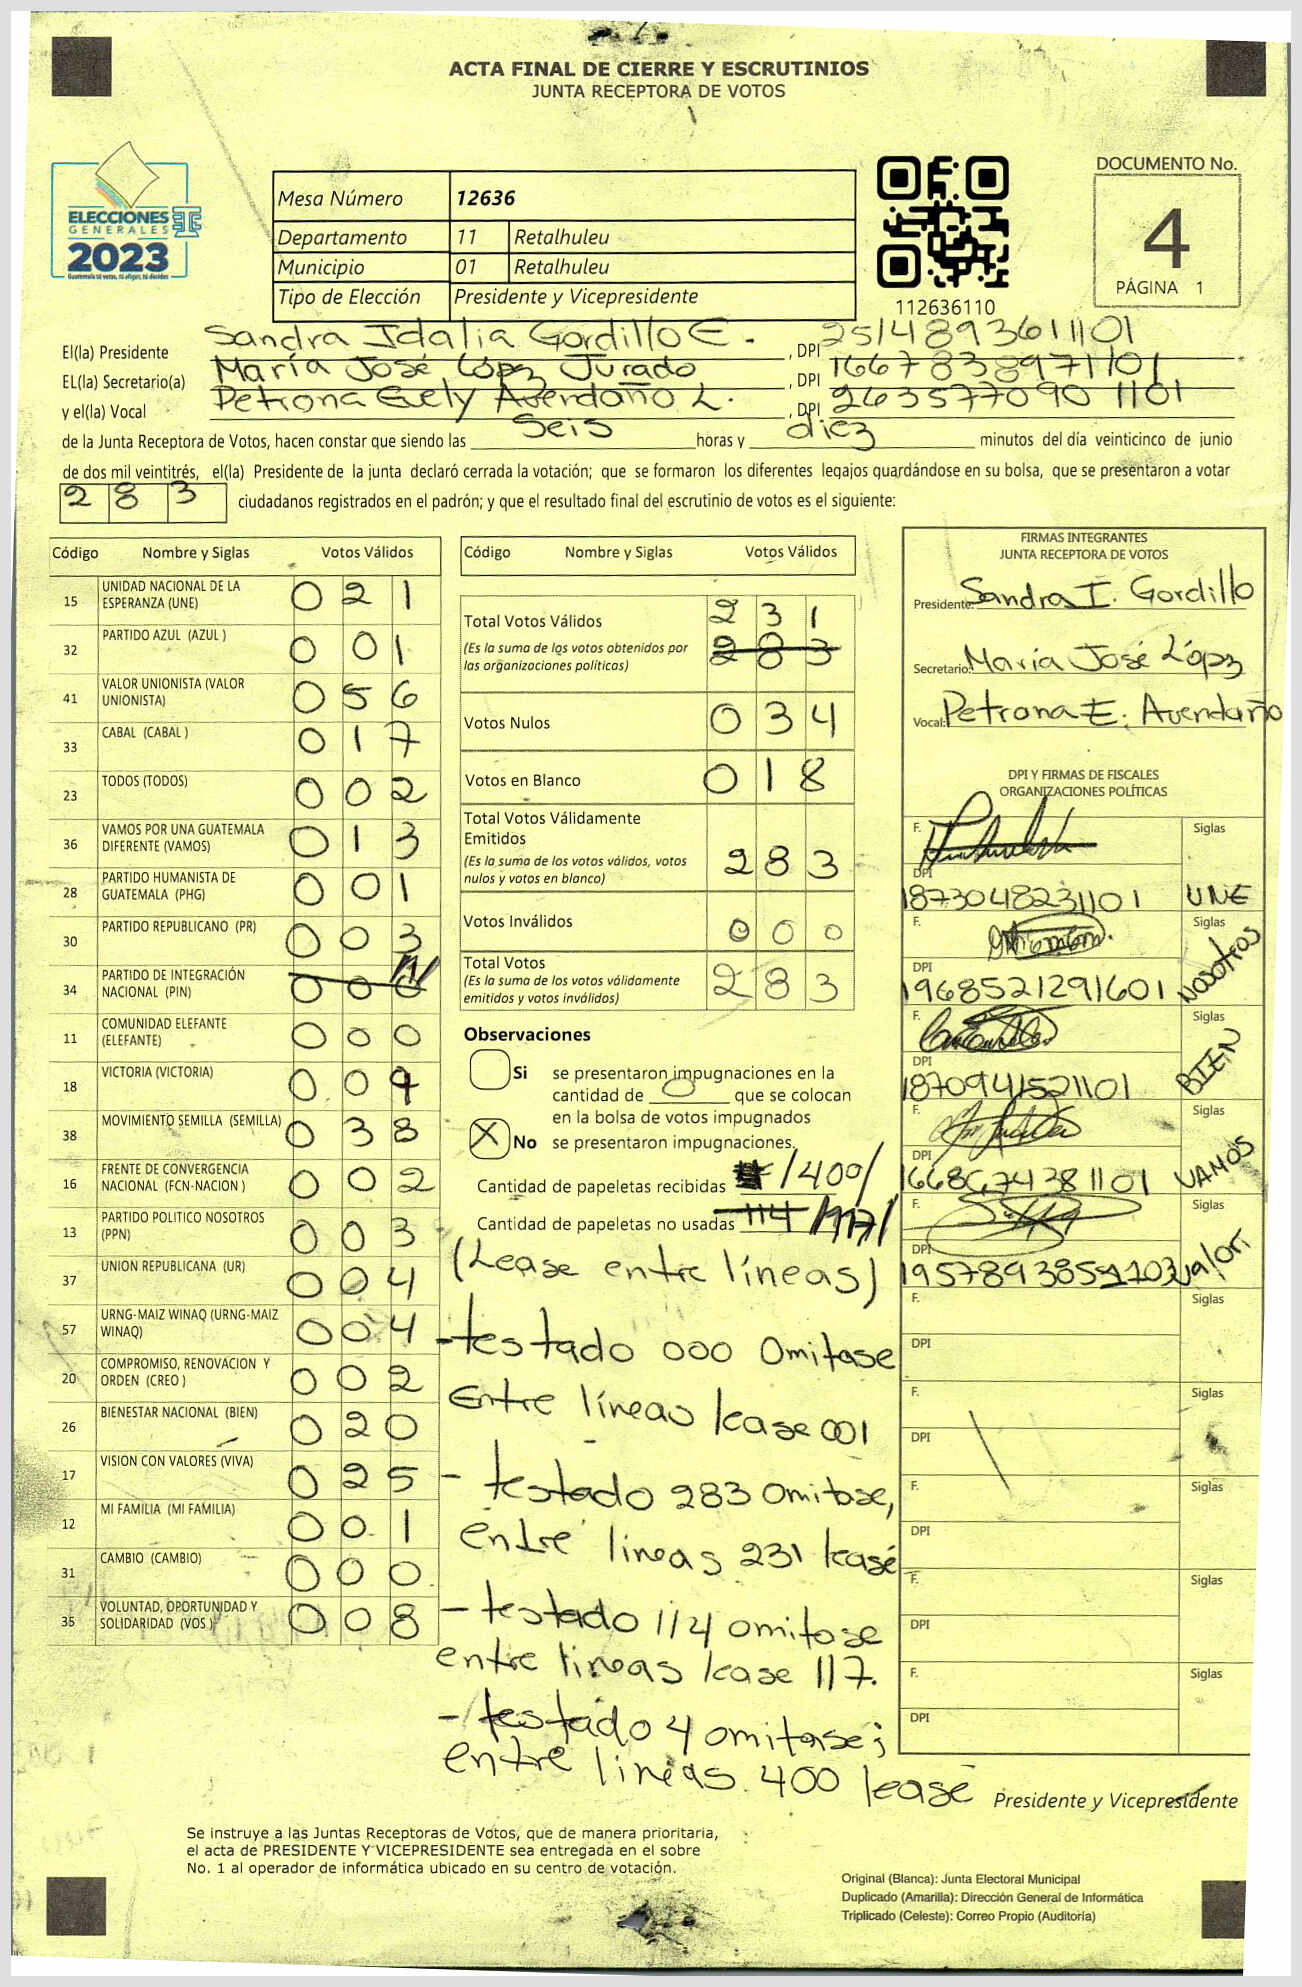 ACTA FINAL DE CIERRE Y ESCRUTINIOS
JUNTA RECEPTORA DE VOTOS
ELECCIONES
GENERALES
2023
Mesa Número 12636
Departamento 11 Retalhuleu
Municipio 01 Retalhuleu
Tipo de Elección Presidente y Vicepresidente
112636110
DOCUMENTO No.
4
PÁGINA 1
El(la) Presidente Sandra Idalia Gordillo E. , DPI 2514893611101
EL(la) Secretario(a) María José López Jurado , DPI 1667838971101
y el(la) Vocal Petrona Evely Avendaño L. , DPI 2635770901101
de la Junta Receptora de Votos, hacen constar que siendo las Seis horas y diez minutos del día veinticinco de junio
de dos mil veintitrés, el(la) Presidente de la junta declaró cerrada la votación; que se formaron los diferentes legajos guardándose en su bolsa, que se presentaron a votar
283 ciudadanos registrados en el padrón; y que el resultado final del escrutinio de votos es el siguiente:
Código Nombre y Siglas Votos Válidos
15 UNIDAD NACIONAL DE LA ESPERANZA (UNE) 0 2 1
32 PARTIDO AZUL (AZUL ) 0 0 1
41 VALOR UNIONISTA (VALOR UNIONISTA) 0 5 6
33 CABAL (CABAL ) 0 1 7
23 TODOS (TODOS) 0 0 2
36 VAMOS POR UNA GUATEMALA DIFERENTE (VAMOS) 0 1 3
28 PARTIDO HUMANISTA DE GUATEMALA (PHG) 0 0 1
30 PARTIDO REPUBLICANO (PR) 0 0 3
34 PARTIDO DE INTEGRACIÓN NACIONAL (PIN) 0 0 0
11 COMUNIDAD ELEFANTE (ELEFANTE) 0 0 0
18 VICTORIA (VICTORIA) 0 0 9
38 MOVIMIENTO SEMILLA (SEMILLA) 0 3 8
16 FRENTE DE CONVERGENCIA NACIONAL (FCN-NACION ) 0 0 2
13 PARTIDO POLITICO NOSOTROS (PPN) 0 0 3
37 UNION REPUBLICANA (UR) 0 0 4
57 URNG-MAIZ WINAQ (URNG-MAIZ WINAQ) 0 0 4
20 COMPROMISO, RENOVACION Y ORDEN (CREO ) 0 0 2
26 BIENESTAR NACIONAL (BIEN) 0 2 0
17 VISION CON VALORES (VIVA) 0 2 5
12 MI FAMILIA (MI FAMILIA) 0 0 1
31 CAMBIO (CAMBIO) 0 0 0
35 VOLUNTAD, OPORTUNIDAD Y SOLIDARIDAD (VOS ) 0 0 8
Código Nombre y Siglas Votos Válidos
Total Votos Válidos 2 3 1
(Es la suma de los votos obtenidos por las organizaciones políticas) 2 8 3
Votos Nulos 0 3 4
Votos en Blanco 0 1 8
Total Votos Válidamente Emitidos
(Es la suma de los votos válidos, votos nulos y votos en blanco) 2 8 3
Votos Inválidos 0 0 0
Total Votos
(Es la suma de los votos válidamente emitidos y votos inválidos) 2 8 3
Observaciones
Si se presentaron impugnaciones en la
cantidad de 0 que se colocan
en la bolsa de votos impugnados
X No se presentaron impugnaciones.
Cantidad de papeletas recibidas /400/
Cantidad de papeletas no usadas 114 /117/
(Lease entre líneas)
-testado 000 Omitase
Entre líneas lease 001
- testado 283 Omitase,
entre lineas 231 lease
- testado 114 omitase
entre lineas lease 117.
- testado 4 omitase;
entre lineas 400 lease
FIRMAS INTEGRANTES
JUNTA RECEPTORA DE VOTOS
Presidente: Sandra I. Gordillo
Secretario: María José López
Vocal: Petrona E. Avendaño
DPI Y FIRMAS DE FISCALES
ORGANIZACIONES POLÍTICAS
F. Siglas
DPI
1873048231101 UNE
F. Siglas
DPI
1968521291601 NOSOTROS
F. Siglas
DPI
1870941521101 BIEN
F. Siglas
DPI
1668674381101 VAMOS
F. Siglas
DPI
Valor
F. Siglas
DPI
F. Siglas
DPI
F. Siglas
DPI
F. Siglas
DPI
F. Siglas
DPI
Presidente y Vicepresidente
Se instruye a las Juntas Receptoras de Votos, que de manera prioritaria,
el acta de PRESIDENTE Y VICEPRESIDENTE sea entregada en el sobre
No. 1 al operador de informática ubicado en su centro de votación.
Original (Blanca): Junta Electoral Municipal
Duplicado (Amarilla): Dirección General de Informática
Triplicado (Celeste): Correo Propio (Auditoría)